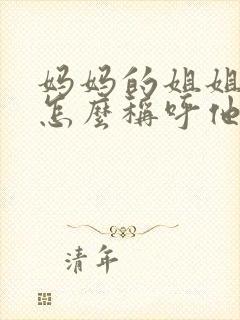 妈妈的姐姐
怎麼稱呼他
清年